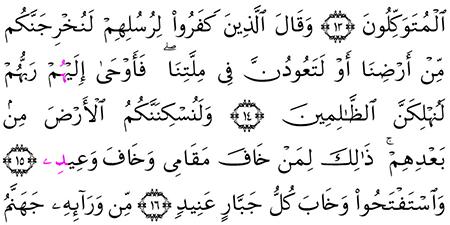 ٱلۡمُتَوَكِّلُونَ ١٣ وَقَالَ ٱلَّذِينَ كَفَرُواْ لِرُسُلِهِمۡ لَنُخۡرِجَنَّكُم
مِّنۡ أَرۡضِنَا أَوۡ لَتَعُودُنَّ فِى مِلَّتِنَاۖ فَأَوۡحَىٰ إِلَيۡهُمۡ رَبُّهُمۡ
لَنُهۡلِكَنَّ ٱلظَّٰلِمِينَ ١٤ وَلَنُسۡكِنَنَّكُمُ ٱلۡأَرۡضَ مِنۢ
بَعۡدِهِمۡۚ ذَٰلِكَ لِمَنۡ خَافَ مَقَامِى وَخَافَ وَعِيدِۦ ١٥
وَٱسۡتَفۡتَحُواْ وَخَابَ كُلُّ جَبَّارٍ عَنِيدٖ ١٦ مِّن وَرَآئِهِۦ جَهَنَّمُ